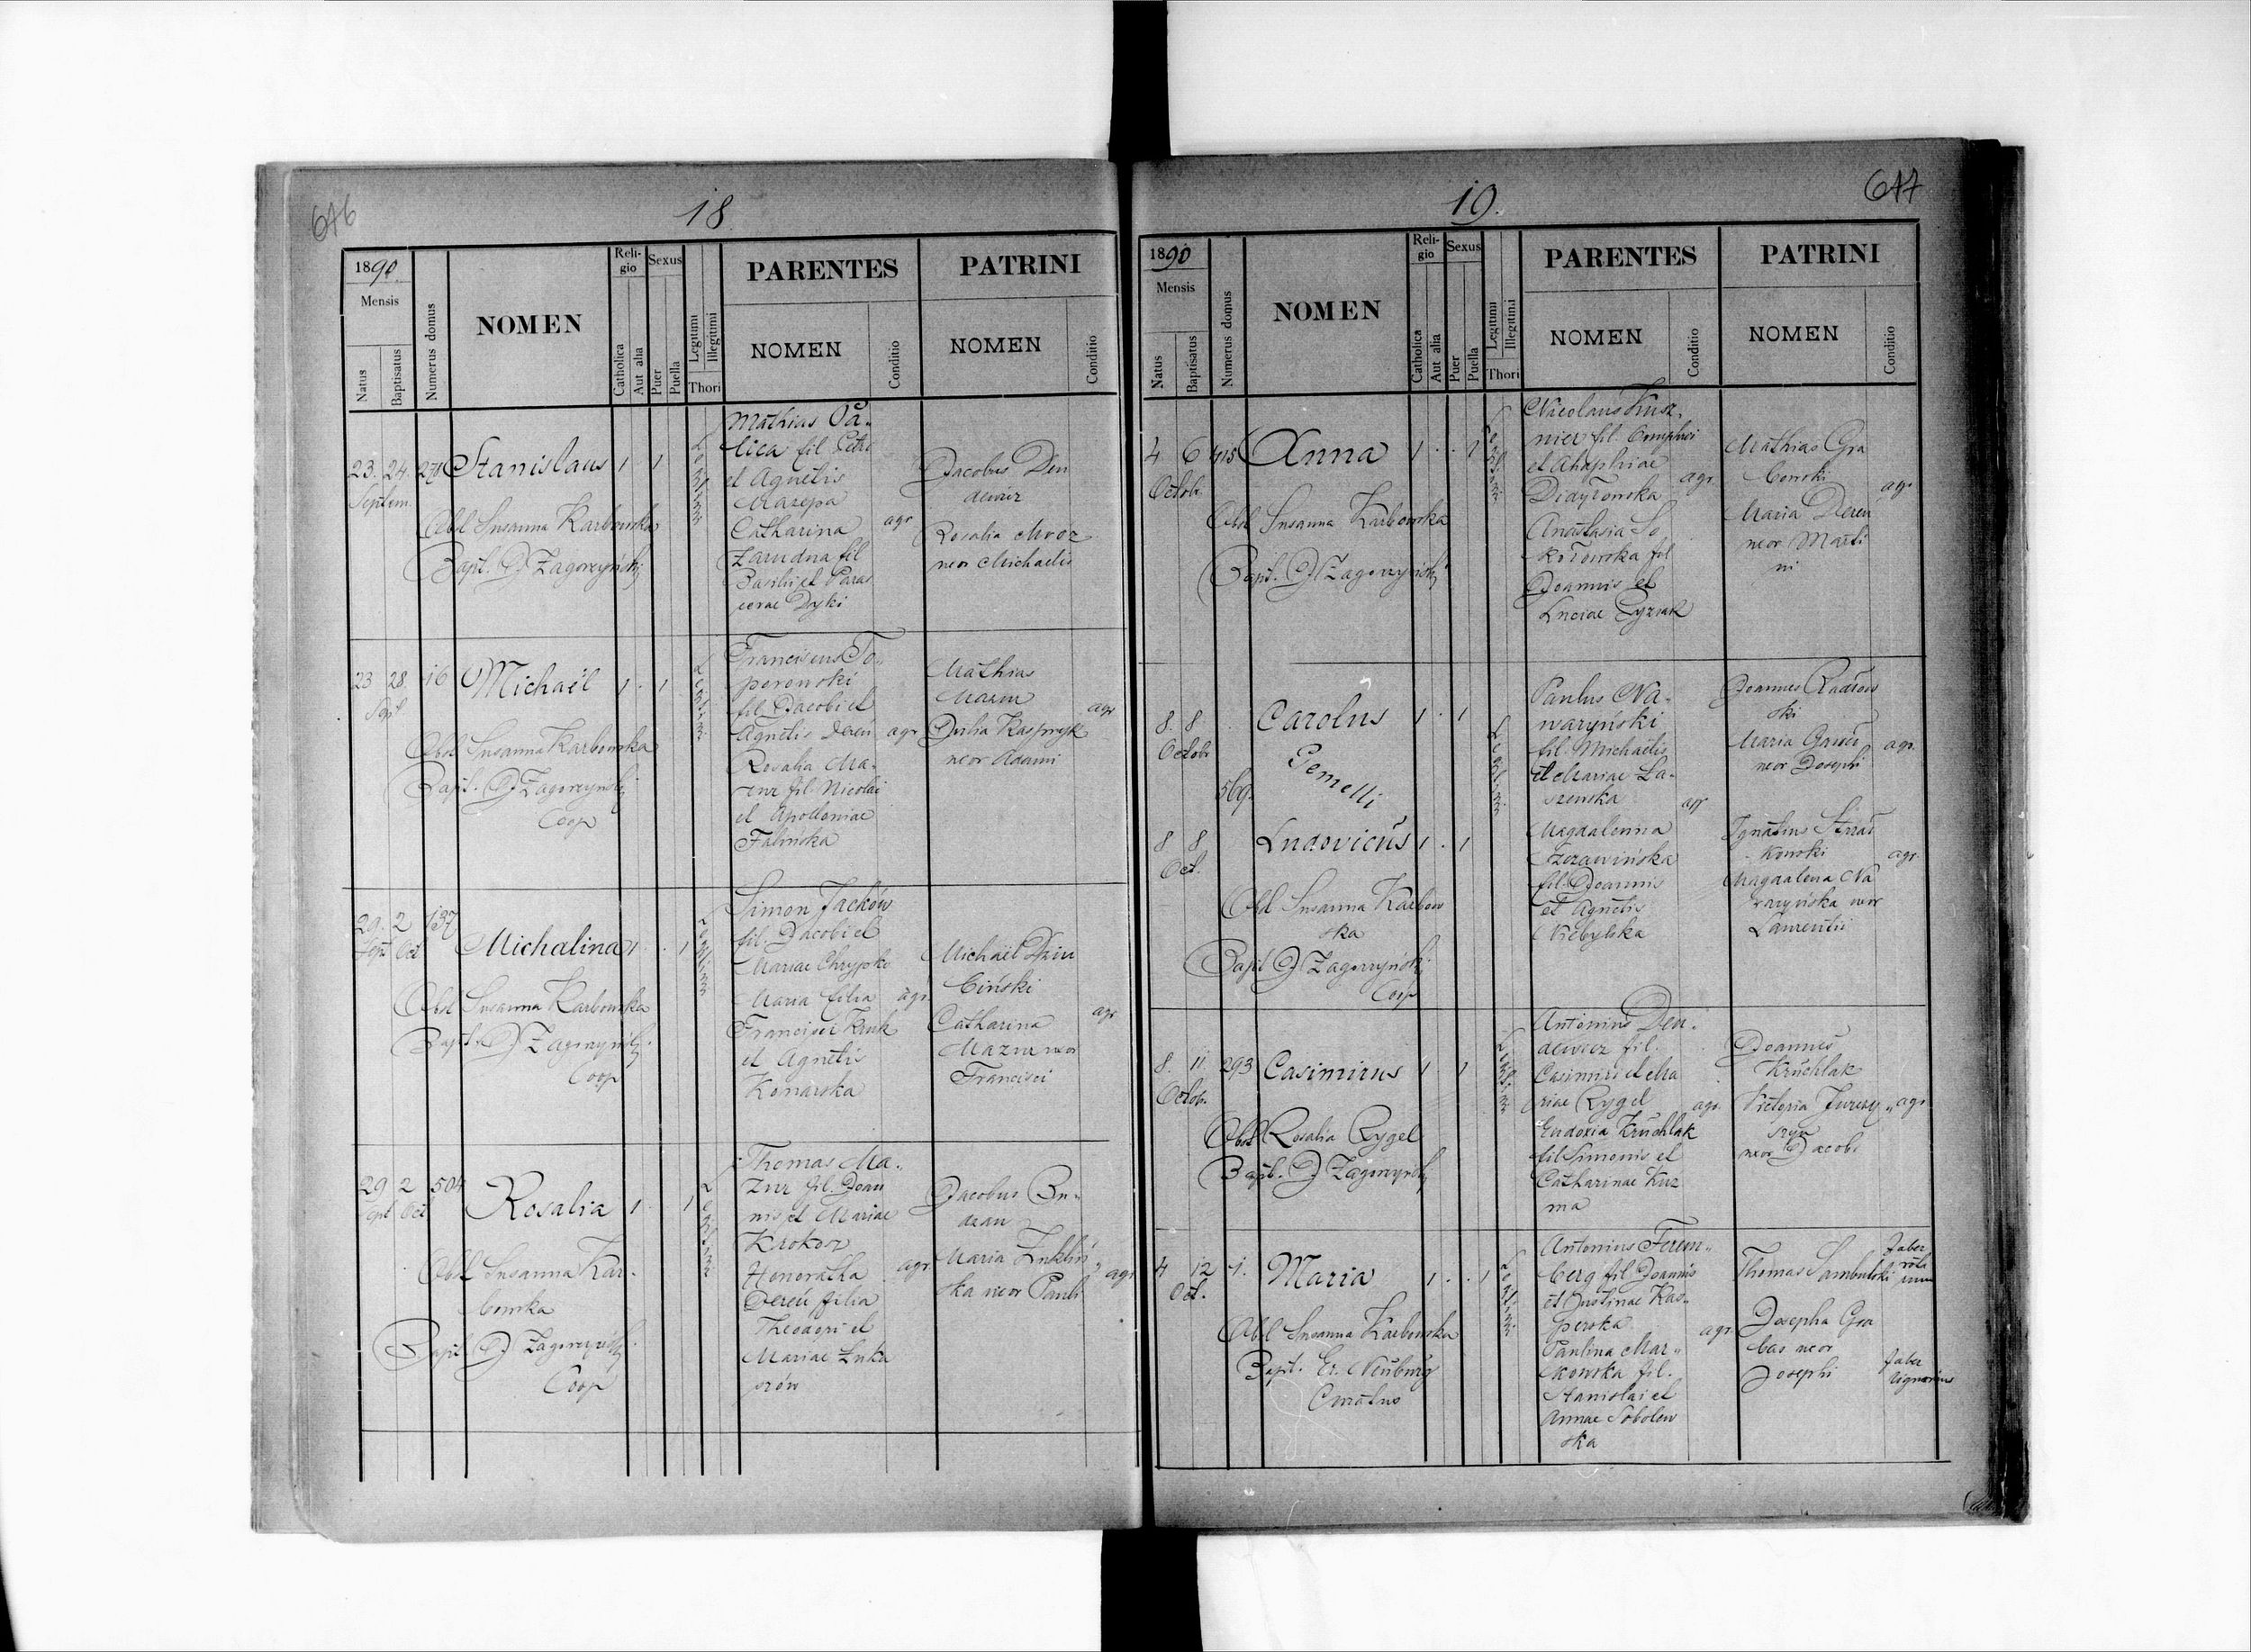 676
18
1890.
Mensis
Natus
Baptisatus
Numerus domus
NOMEN
Reli-
gio
Catholica
Aut alia
Sexus
Puer
Puella
Legitimi
Illegitimi
Thori
PARENTES
NOMEN
Conditio
PATRINI
NOMEN
Conditio
23. 24. 278 Stanislaus 1 1
Septem.
Obst Susanna Karbowska
Bapt. J Zagorzyński
Legitimi
Mathias Pa-
lica fil Petri
et Agnetis
Mazepa
Catharina
Zarudna fil
Basilii et Paras
cevae Dyki
agr
Jacobus Den
dewicz
Rosalia Mroz
uxor Michaelis
23 28. 16 Michaël 1 1
Sept
Obst Susanna Karbowska
Bapt. J Zagorzyński
Coop
Legitimi
Franciscus To-
porowski
fil. Jacobi et
Agnetis Dereń
Rosalia Ma-
zur fil Nicolai
et Apolloniae
Falińska
agr
Mathias
Mazur
Julia Kasprzyk
uxor Adami
agr
29. 2 137 Michalina 1 1
Sept Oct
Obst Susanna Karbowska
Bapt. J Zagorzyński
Coop
Legitimi
Simon Jacków
fil. Jacobi et
Mariae Chrypko
Maria filia
Francisci Kruk
et Agnetis
Konarska
agr.
Michaël Dziu
biński
Catharina
Mazur uxor
Francisci
agr
29 2 504 Rosalia 1 1
Sept Oct
Obst Susanna Kar-
bowska
Bapt J Zagorzyński
Coop
Legitimi
Thomas Ma-
zur fil. Joan
nis et Mariae
Krokosz
Honoratha
Dereń filia
Theodori et
Mariae Łuka
szów
agr.
Jacobus Bu-
dzan
Maria Zukliń
ska uxor Pauli
agr
19.
677
1890
Mensis
Natus
Baptisatus
Numerus domus
NOMEN
Reli-
gio
Catholica
Aut alia
Sexus
Puer
Puella
Legitimi
Illegitimi
Thori
PARENTES
NOMEN
Conditio
PATRINI
NOMEN
Conditio
4 6 415 Anna 1 1
Octob.
Obst Susanna Karbowska
Bapt. J Zagorzyński
Legitimi
Nicolaus Kusz-
nier fil. Omphrei
et Ahaphiae
Dedyłowska
Anastasia So
kołowska fil
Joannis et
Luciae Pyziak
agr.
Mathias Gra
bowski
Maria Dereń
uxor Marti
ni
agr
8. 8 Carolus 1 1
Octobr
569. Gemelli
8 8 Ludovicus 1 1
Oct.
Obst Susanna Karbow
ska
Bapt J Zagorzyński
Coop
Legitimi
Paulus Na-
waryński
fil. Michaelis
et Mariae La-
szewska
Magdalenna
Czerawińska
fil. Joannis
et Agnetis
Niebylska
agr
Joannes Radłow
ski
Maria Gaweł
uxor Josephi
agr.
Ignatius Strzał
kowski
Magdalena Na
waryńska uxor
Laurentii
agr.
8. 11. 293 Casimirus 1 1
Octob.
Obst Rosalia Rygel
Bapt. J Zagorzyński
Legitimi
Antonius Den-
dewicz fil.
Casimiri et Ma
riae Rygel
Eudoxia Kruchlak
fil Simonis et
Catharinae Kuz
ma
agr.
Joannes
Kruchlak
Victoria Jurczy-
szyn
uxor Jacobi
agr
4 12 1. Maria 1 1
Oct.
Obst Susanna Karbowska
Bapt. Er. Neuburg
Curatus
Legitimi
Antonius Ferem-
berg fil Joannis
et Justinae Kas-
perska
Paulina Mar-
kowska fil.
Stanislai et
Annae Sobolew
ska
agr.
Thomas Sambulski
faber
rota
rum
Josepha Gra
bas uxor
Josephi
faber
lignarius